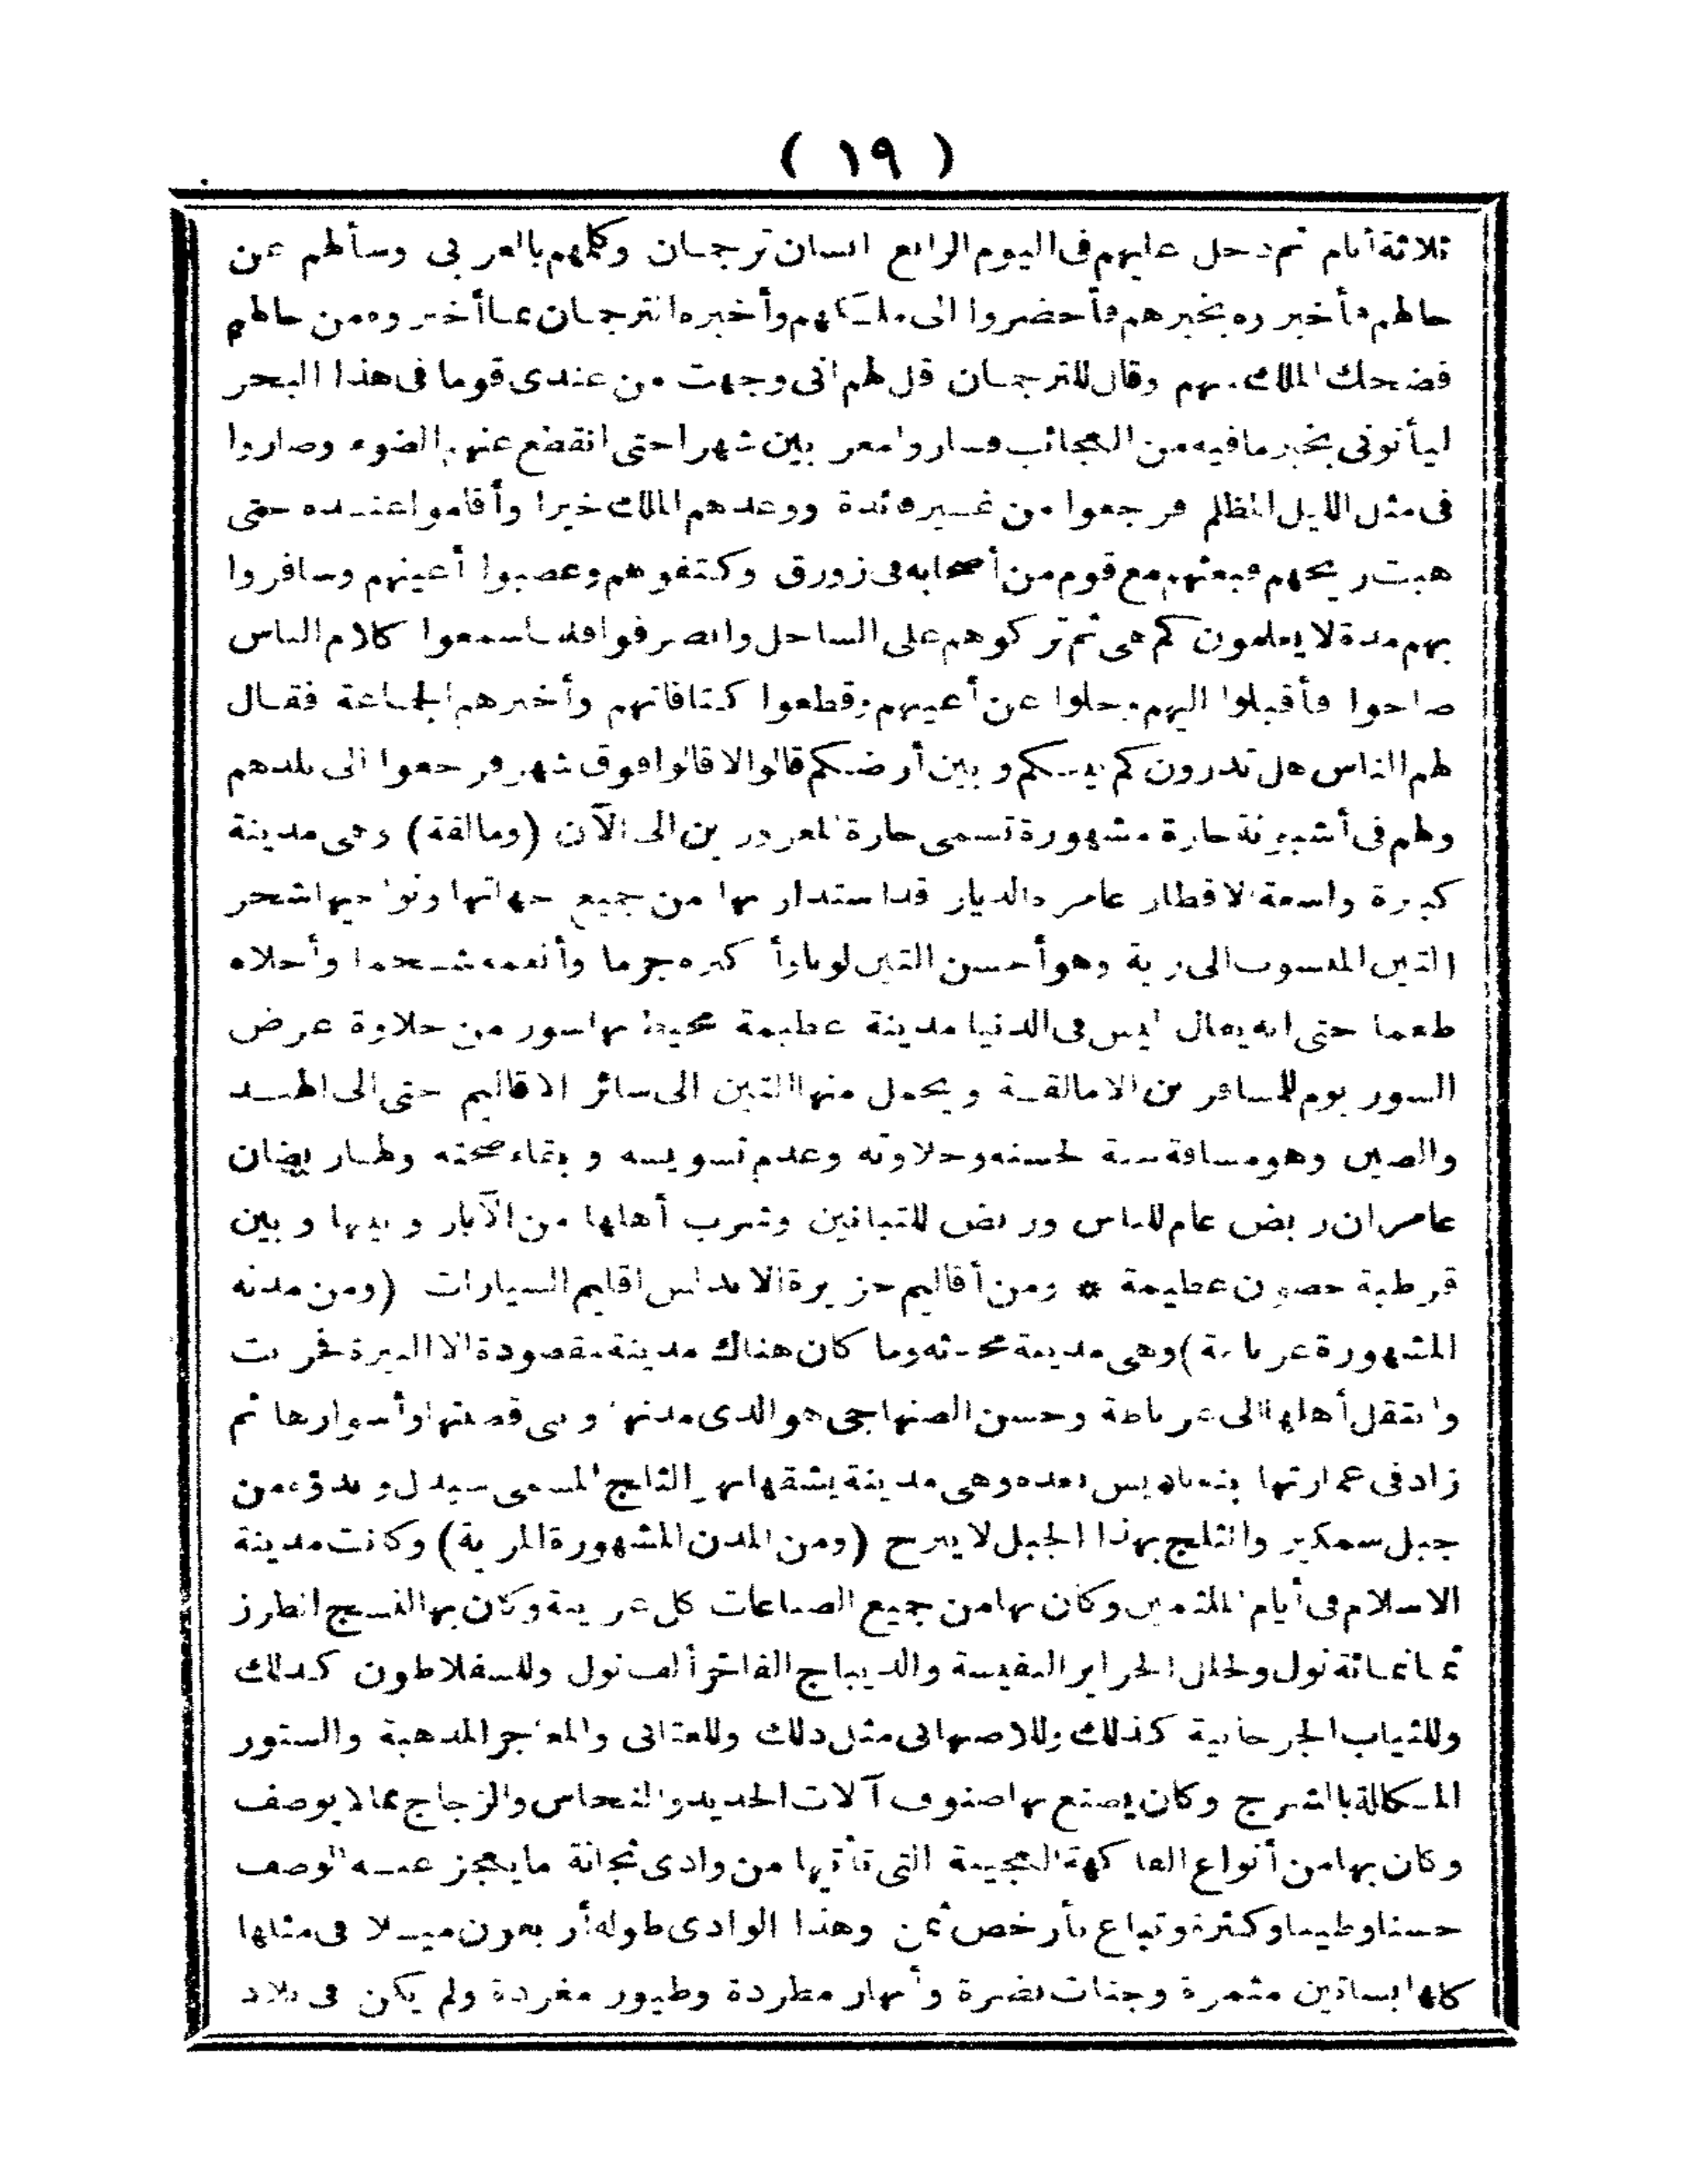 ( ١٩ )
ثلاثة أيام ثم دخل عليهم فى اليوم الرابع انسان ترجمان وكلمهم بالعربى وسألهم عن
حالهم فأخبروه بخبرهم فأحضروا الى ملكهم وأخبره الترجمان بما أخبروه من حالهم
فضحك الملك منهم وقال للترجمان قل لهم انى وجهت من عندى قوما فى هذا البحر
ليأتونى بخبر مافيه من العجائب فساروا مغربين شهرا حتى انقطع عنهم الضوء وصاروا
فى مثل الليل المظلم فرجعوا من غير فائدة ووعدهم الملك خيرا وأقاموا عنده حتى
هبت ريحهم فبعثهم مع قوم من أصحابه فى زورق وكتفوهم وعصبوا أعينهم وسافروا
بهم مدة لا يعلمون كم هى ثم تركوهم على الساحل وانصرفوا فلما سمعوا كلام الناس
صاحوا فأقبلوا اليهم وحلوا عن أعينهم وقطعوا كتافاتهم وأخبرهم الجماعة فقال
لهم الناس هل تدرون كم بينكم وبين أرضكم قالوا لا قالوا فوق شهر فرجعوا الى بلدهم
ولهم فى أشبونة حارة مشهورة تسمى حارة المغرورين الى الآن (ومالقة) وهى مدينة
كبيرة واسعة الاقطار عامرة الديار قد استدار بها من جميع جهاتها ونواحيها شجر
التين المنسوب الى رية وهو أحسن التين لونا وأكبره جرما وأنعمه شحما وأحلاه
طعما حتى انه يقال ليس فى الدنيا مدينة عظيمة محيط بها سور من حلاوة عرض
السور يوم للمسافر من الامالقة ويحمل منها التين الى سائر الاقاليم حتى الى الهند
والصين وهو مسافة سنة لحسنه وحلاوته وعدم تسويسه وبقاء صحته ولها ربضان
عامران ربض عام للناس وربض للتبانين وشرب أهلها من الآبار وبينها وبين
قرطبة حصون عظيمة * ومن أقاليم جزيرة الاندلس اقليم السيارات (ومن مدنه
المشهورة غرناطة) وهى مدينة محدثه وما كان هناك مدينة مقصودة الا البيرة فخربت
وانتقل أهلها الى غرناطة وحسن الصنهاجى هو الذى مدنها وبنى قصبتها وأسوارها ثم
زاد فى عمارتها ابنه باديس بعده وهى مدينة يشقها نهر الثلج المسمى سيدل وبدؤه من
جبل سمكير والثلج بهذا الجبل لا يبرح (ومن المدن المشهورة المرية) وكانت مدينة
الاسلام فى أيام الملثمين وكان بها من جميع الصناعات كل غريبة وكان بها النسج الطرز
ثمانمائة نول ولحلل الحراير النفيسة والديباج الفاخر ألف نول وللسقلاطون كذلك
وللثياب الجرجانية كذلك وللاصبهانى مثل ذلك وللعتابى والمعاجر المذهبة والستور
المكللة بالشرج وكان يصنع بها صنوف آلات الحديد والنحاس والزجاج مما لا يوصف
وكان بها من أنواع الفاكهة العجيبة التى تأتيها من وادى بجانة ما يعجز عنه الوصف
حسنا وطيبا وكثرة وتباع بأرخص ثمن وهذا الوادى طوله أربعون ميلا فى مثلها
كلها بساتين مثمرة وجنات نضرة وأنهار مطردة وطيور مغردة ولم يكن فى بلاد